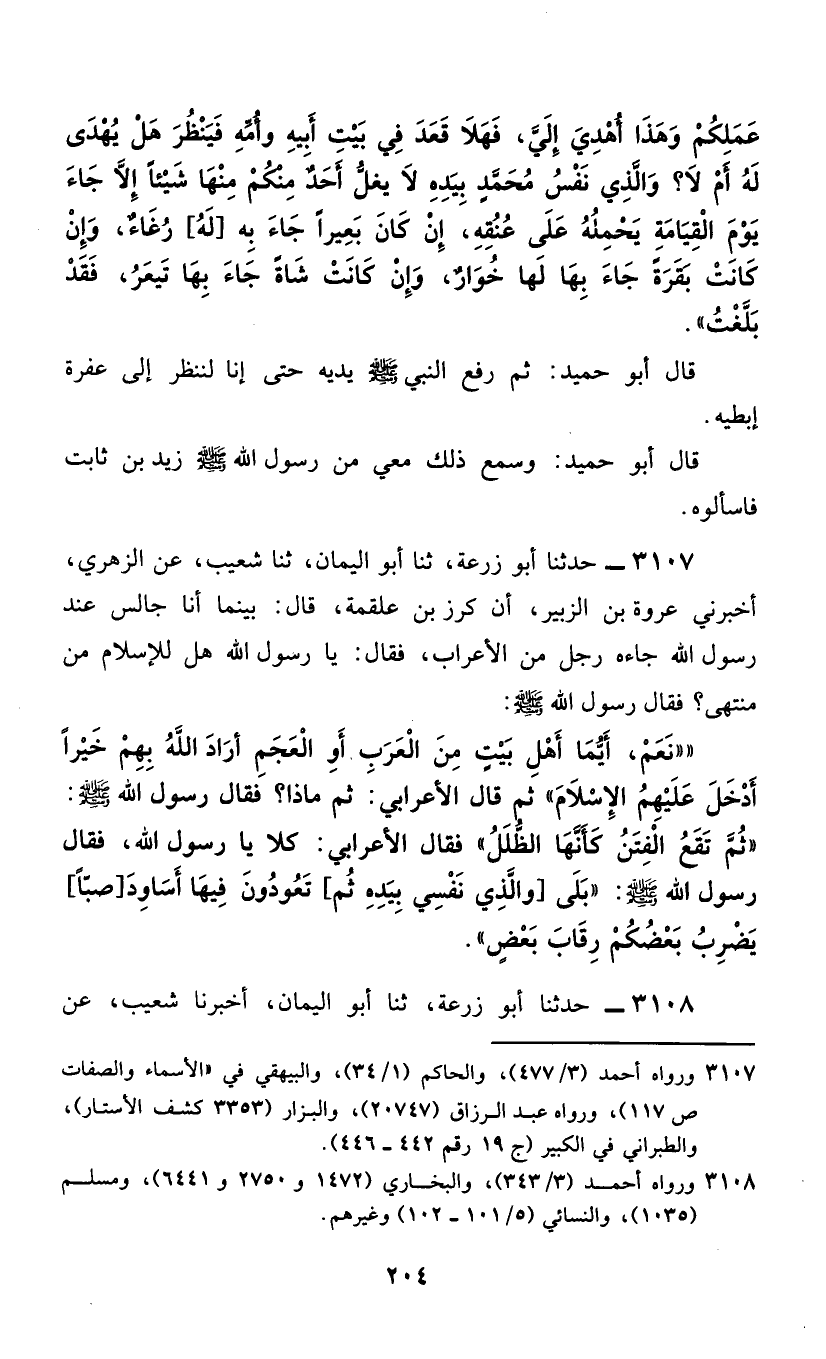 عَمَلِكُمْ وَهَذَا أُهْدِيَ إِلَيَّ، فَهَلَا قَعَدَ فِي بَيْتِ أَبِيهِ وأُمِّهِ فَيَنْظُرَ هَلْ يُهْدَى
لَهُ أَمْ لَا؟ وَالَّذِي نَفْسُ مُحَمَّدٍ بِيَدِهِ لَا يغلُّ أَحَدٌ مِنْكُمْ مِنْهَا شَيْئاً إِلَّا جَاءَ
يَوْمَ الْقِيَامَةِ يَحْمِلُهُ عَلَى عُنُقِهِ، إِنْ كَانَ بَعِيراً جَاءَ بِه [لَهُ] رُغَاءٌ، وَإِنْ
كَانَتْ بَقَرَةً جَاءَ بِهَا لَها خُوَارٌ، وَإِنْ كَانَتْ شَاةً جَاءَ بِهَا تَيعَرُ، فَقَدْ
بَلَّغْتُ».
قال أبو حميد: ثم رفع النبي ﷺ يديه حتى إنا لننظر إلى عفرة
إبطيه.
قال أبو حميد: وسمع ذلك معي من رسول الله ﷺ زيد بن ثابت
فاسألوه.
٣١٠٧ ـ حدثنا أبو زرعة، ثنا أبو اليمان، ثنا شعيب، عن الزهري،
أخبرني عروة بن الزبير، أن كرز بن علقمة، قال: بينما أنا جالس عند
رسول الله جاءه رجل من الأعراب، فقال: يا رسول الله هل للإسلام من
منتهى؟ فقال رسول الله ﷺ:
««نَعَمْ، أَيُّمَا أَهْلِ بَيْتٍ مِنَ الْعَرَبِ أَوِ الْعَجَمِ أرَادَ اللَّهُ بِهِمْ خَيْراً
أَدْخَلَ عَلَيْهِمُ الإِسْلَامَ» ثم قال الأعرابي: ثم ماذا؟ فقال رسول الله ﷺ:
«ثُمَّ تَقَعُ الْفِتَنُ كَأَنَّهَا الظُّلَلُ» فقال الأعرابي: كلا يا رسول الله، فقال
رسول الله ﷺ: «بَلَى [والَّذِي نَفْسِي بِيَدِهِ ثُم] تَعُودُونَ فِيهَا أَسَاوِدَ[صبّاً]
يَضْرِبُ بَعْضُكُمْ رِقَابَ بَعْضٍ».
٣١٠٨ ـ حدثنا أبو زرعة، ثنا أبو اليمان، أخبرنا شعيب، عن
٣١٠٧ ورواه أحمد (٣/٤٧٧)، والحاكم (١/٣٤)، والبيهقي في «الأسماء والصفات
ص ١١٧)، ورواه عبد الرزاق (٢٠٧٤٧)، والبزار (٣٣٥٣ كشف الأستار)،
والطبراني في الكبير (ج ١٩ رقم ٤٤٢ ـ ٤٤٦).
٣١٠٨ ورواه أحمد (٣/٣٤٣)، والبخاري (١٤٧٢ و ٢٧٥٠ و ٦٤٤١)، ومسلم
(١٠٣٥)، والنسائي (٥/١٠١ ـ ١٠٢) وغيرهم.
٢٠٤